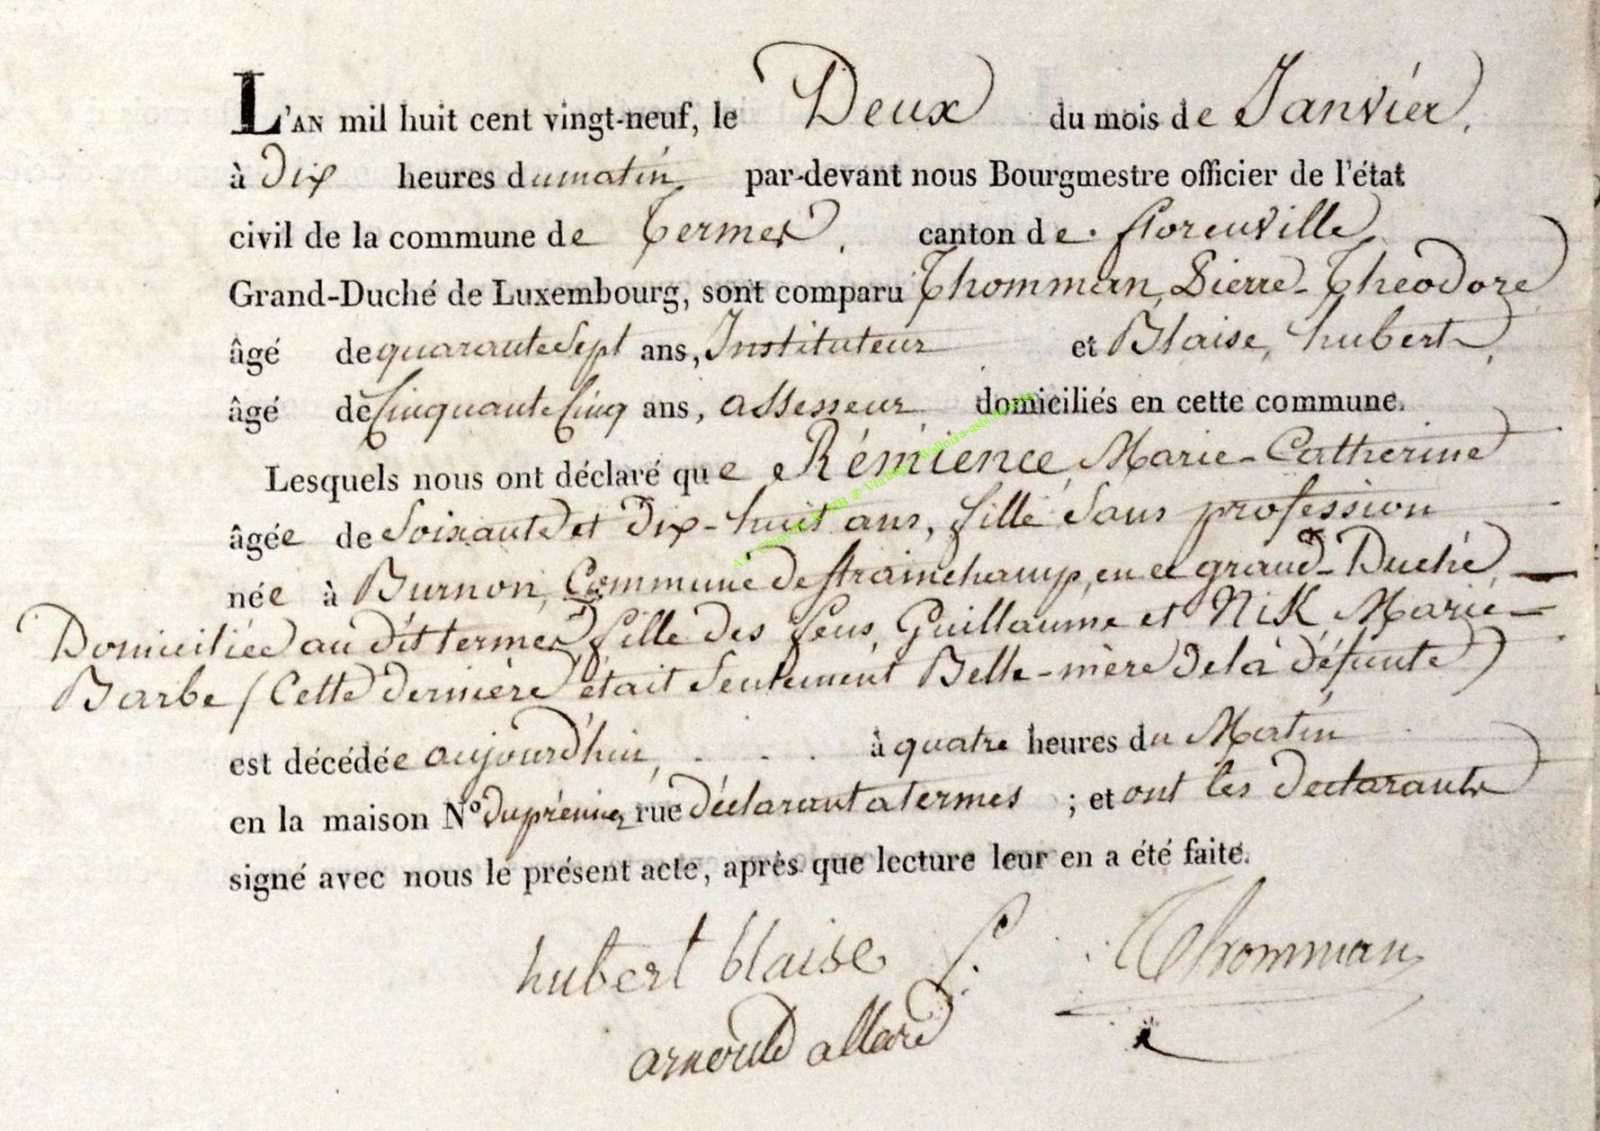 L'AN mil huit cent vingt-neuf, le Deux du mois de Janvier,
à Dix heures du matin, par-devant nous Bourgmestre officier de l'état
civil de la commune de termes, canton de florenville
Grand-Duché de Luxembourg, sont comparu Thomman, Pierre-Theodore
âgé de quarante sept ans, Instituteur et Blaise, hubert,
âgé de Cinquante Cinq ans, assesseur domiciliés en cette commune.
Lesquels nous ont déclaré que Rémience, Marie-Catherine
âgée de Soixante et Dix-huit ans, fille Sans profession
née à Burnon, Commune de strainchamp, en ce grand-Duché,
Domiciliée au dit termes, fille des feus Guillaume et Nik Marie-
Barbe (Cette dernière était Seulement Belle-mère de la défunte)
est décédée aujourd'hui, . . . à quatre heures du Matin
en la maison Nº du prémier rue déclarant a termes ; et ont les declarants
signé avec nous le présent acte, après que lecture leur en a été faite.
hubert blaise Thomman
arnould allard